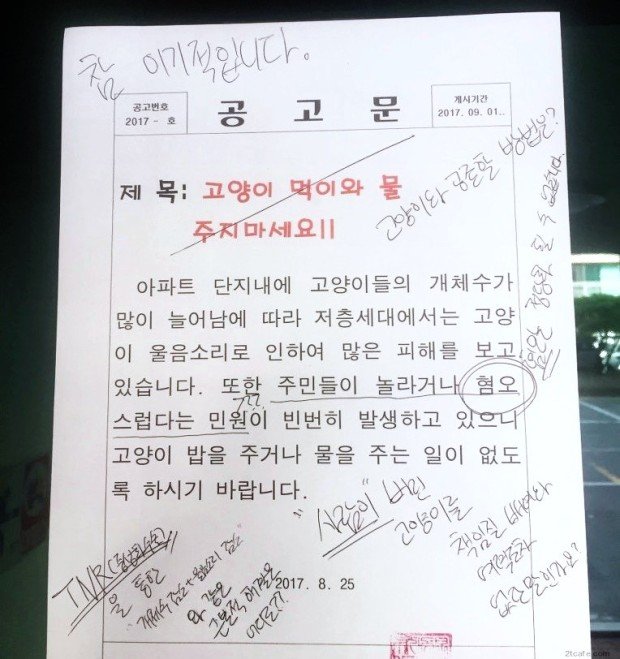 참 이기적입니다.
공고번호
2017 - 호
공 고 문
게시기간
2017. 09. 01..
제 목: 고양이 먹이와 물
주지마세요!!
고양이와 공존할 방법은?
혐오는 정당화 될 수 없습니다
아파트 단지내에 고양이들의 개체수가
많이 늘어남에 따라 저층세대에서는 고양
이 울음소리로 인하여 많은 피해를 보고
있습니다. 또한 주민들이 놀라거나 혐오
스럽다는 민원이 빈번히 발생하고 있으니
고양이 밥을 주거나 물을 주는 일이 없도
록 하시기 바랍니다.
???
"사람이" 버린
고양이를
책임질
없단 말인가요?
TNR(중성화수술)
을 통한
"개체수 감소 + 울음소리 감소"
와 같은
근본적 해결은
어디로?
2017. 8. 25
2tcafe.com